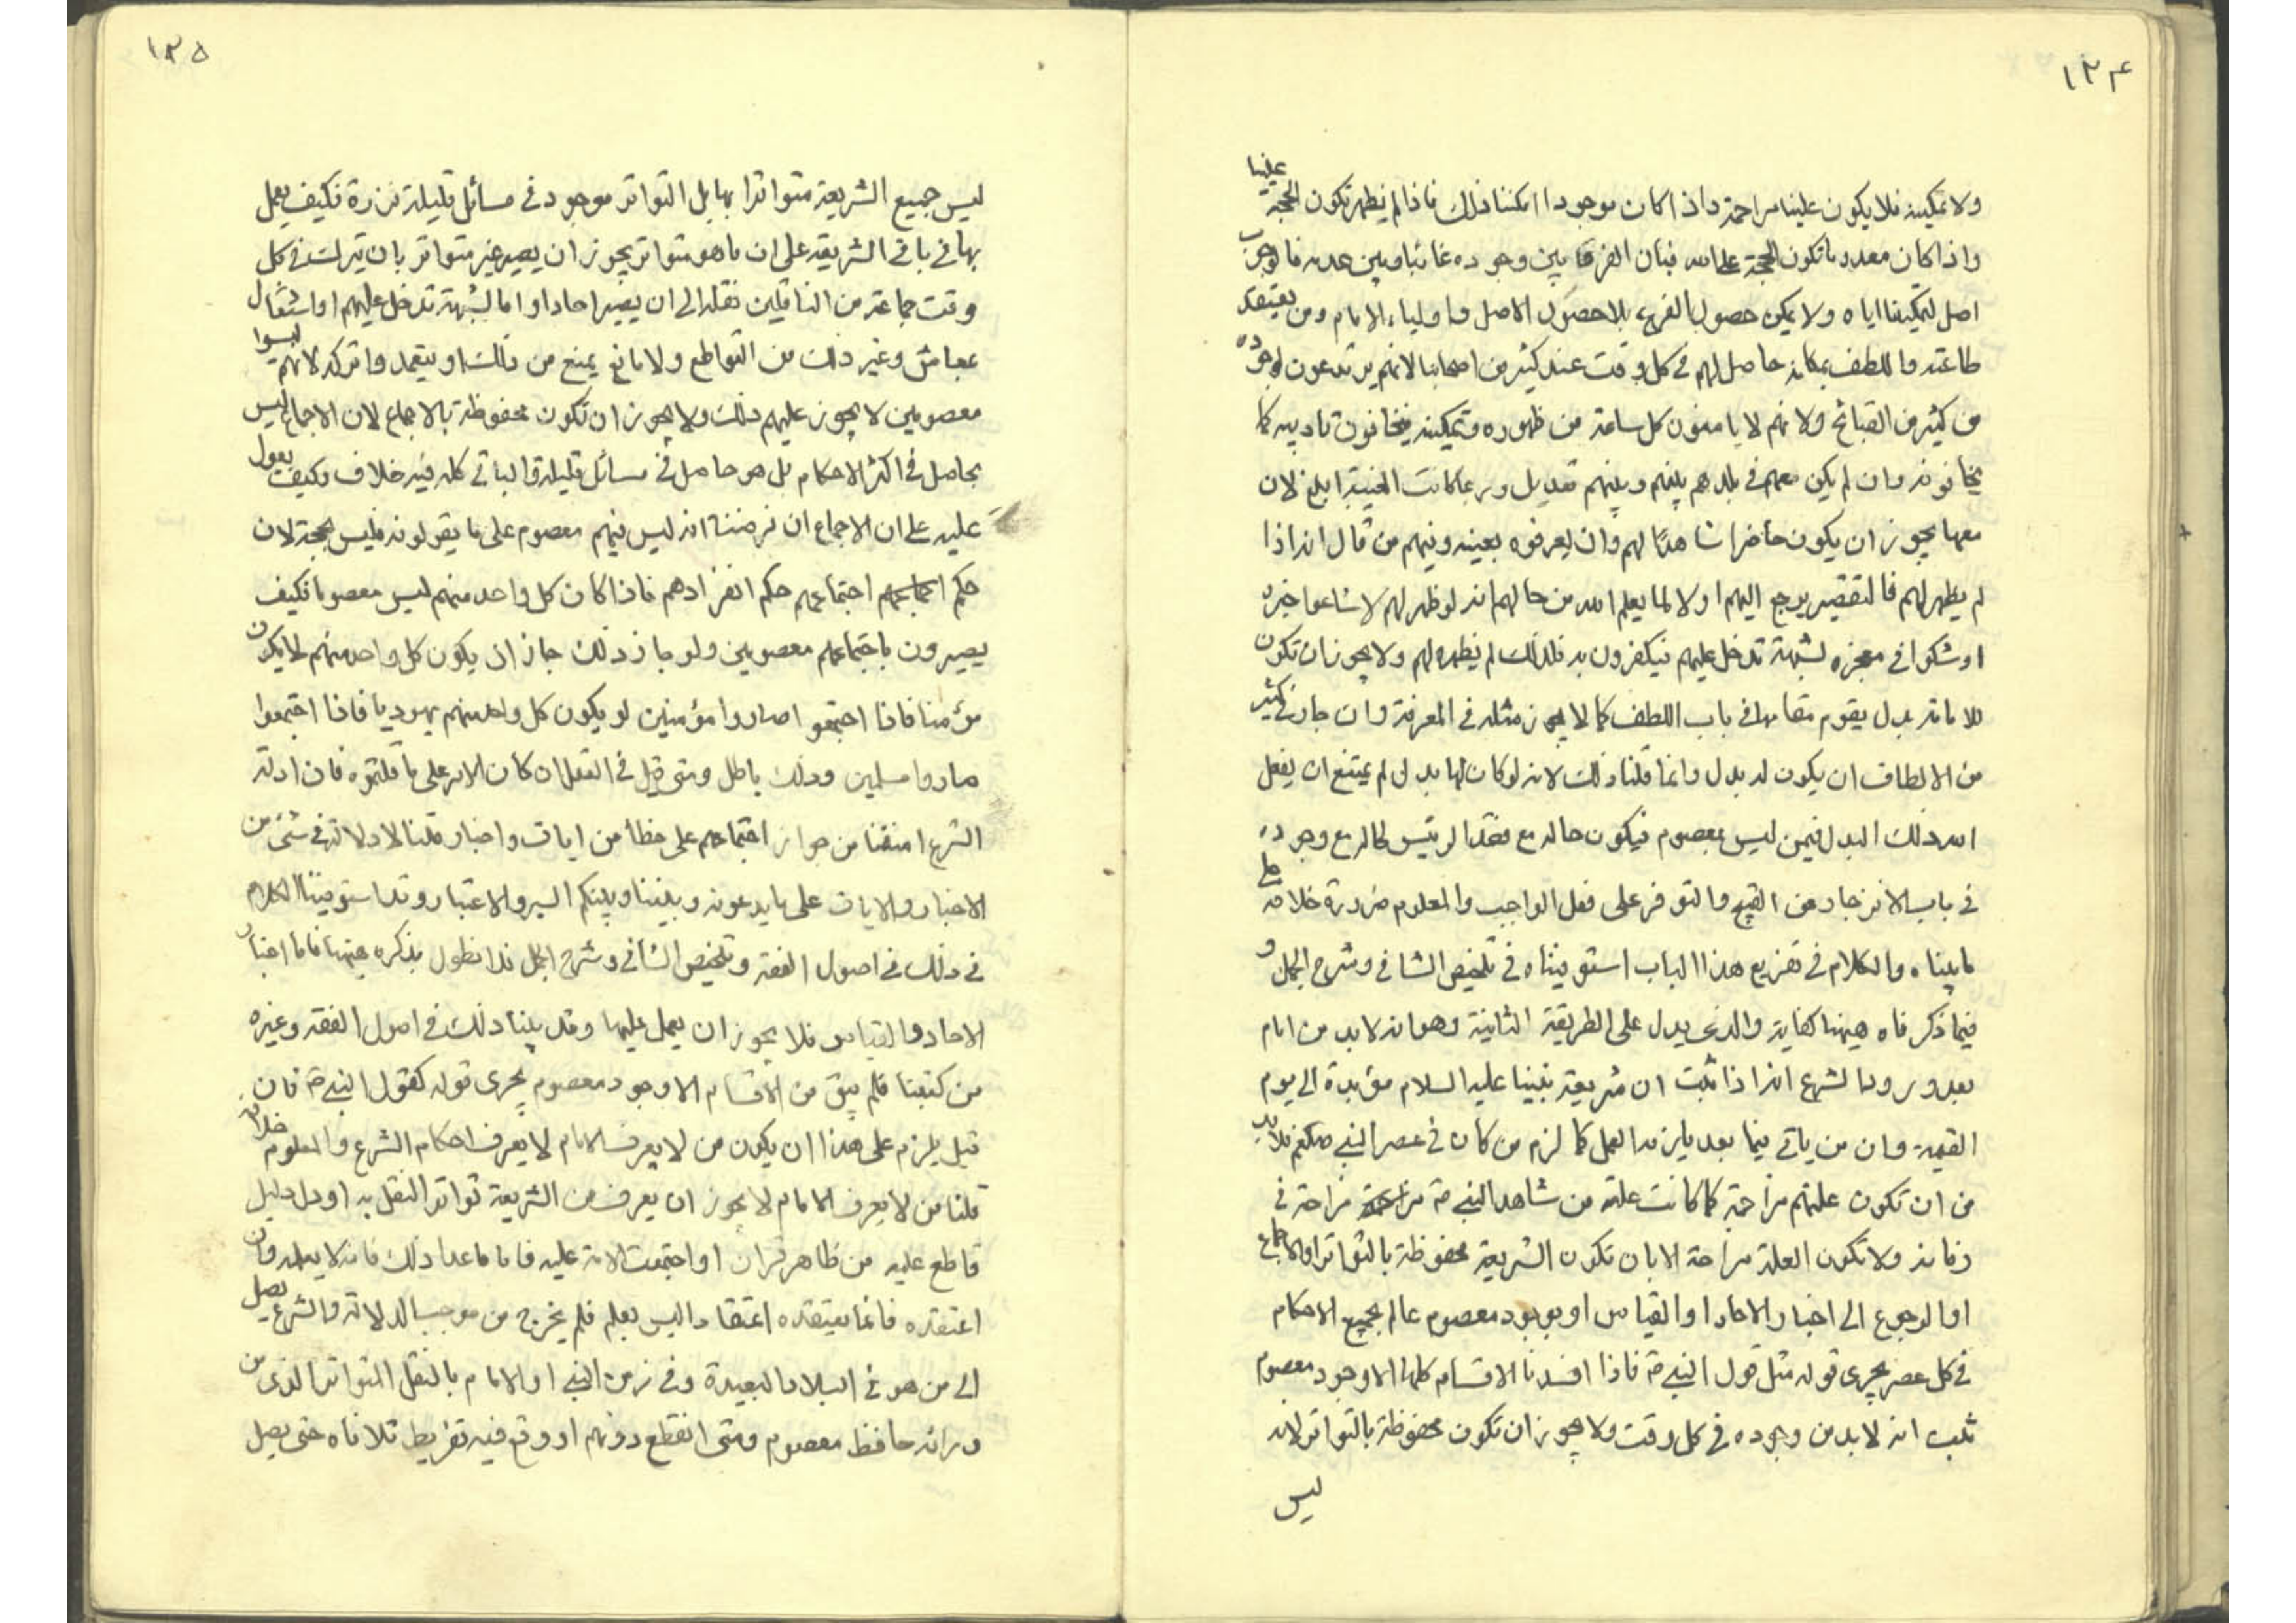 ١٣٤
ولا تمكينه فلا يكون علينا مزاحمة واذا كان موجودا امكننا ذلك فاذا لم يظهر تكون الحجة علينا
واذا كان معدوما تكون الحجة على الله فبان الفرق بين وجوده غائبا وبين عدمه فالوجوب
اصل لتمكيننا اياه ولا يمكن حصول الفرع بلا حصول الاصل واولياء الامام ومن يعتقد
طاعته واللطف بمكانه حاصل لهم في كل وقت عند كثير من اصحابنا لانهم يرتدعون لوجوده
من كثير من القبائح ولانهم لا يامنون كل ساعة من ظهوره وتمكينه فيخافون تاديبه كما
يخافونه وان لم يكن معهم في بلدهم بينهم وبينهم تعديل وربما كانت الغيبة ابلغ لان
معها يجوز ان يكون حاضرا شاهدا لهم وان لم يعرفوه بعينه ومنهم من قال انه اذا
لم يظهر لهم فالتقصير يرجع اليهم اولا لما يعلم الله من حالهم انه لو ظهر لهم لاشاعوا خبره
او شكوا في معجزه لشبهة تدخل عليهم فيكفرون به فلذلك لم يظهر لهم ولا يجوز ان تكون
للامامة بدل يقوم مقامها في باب اللطف كما لا يجوز مثله في المعرفة وان جاز في كثير
من الالطاف ان يكون له بدل وانما قلنا ذلك لانه لو كان لها بدل لم يمتنع ان يفعل
الله ذلك البدل فيمن ليس بمعصوم فيكون حاله مع فقد الرئيس كحاله مع وجوده
في باب الانزجار عن القبيح والتوفر على فعل الواجب والمعلوم ضرورة خلافه على
ما بيناه والكلام في تفريع هذا الباب استوفيناه في تلخيص الشافي وشرح الجمل و
فيما ذكرناه هيهنا كفاية والذي يدل على الطريقة الثانية وهو انه لابد من امام
بعد ورود الشرع انه اذا ثبت ان شريعة نبينا عليه السلام مؤبدة الى يوم
القيمة وان من ياتي فيما بعد يلزمه العمل كما لزم من كان في عصر النبي صلعم فلابد
من ان تكون علتهم مزاحة كما كانت علة من شاهد النبي ص مزاحة في
زمانه ولا تكون العلة مزاحة الا بان تكون الشريعة محفوظة بالتواتر او الاجماع
او الرجوع الى اخبار الاحاد او القياس او بوجود معصوم عالم بجميع الاحكام
في كل عصر يجرى قوله مثل قول النبي ص فاذا افسدنا الاقسام كلها الا وجود معصوم
ثبت انه لابد من وجوده في كل وقت ولا يجوز ان تكون محفوظة بالتواتر لانه
ليس
١٣٥
ليس جميع الشريعة متواترا بها بل التواتر موجود في مسائل قليلة نزرة فكيف يعمل
بها في باقي الشريعة على ان ما هو متواتر يجوز ان يصير غير متواتر بان يترك في كل
وقت جماعة من الناقلين نقله الى ان يصير احادا واما لشبهة تدخل عليهم او اشتغال
بمعاش وغير ذلك من القواطع ولا مانع يمنع من ذلك او يتعمدوا تركه لانهم ليسوا
معصومين لا يجوز عليهم ذلك ولا يجوز ان تكون محفوظة بالاجماع لان الاجماع ليس
بحاصل في اكثر الاحكام بل هو حاصل في مسائل قليلة والباقي كله فيه خلاف وكيف يعول
عليه على ان الاجماع ان فرضنا انه ليس فيهم معصوم على ما يقولونه فليس بحجة لان
حكم اجتماعهم حكم انفرادهم فاذا كان كل واحد منهم ليس معصوما فكيف
يصيرون باجتماعهم معصومين ولو جاز ذلك جاز ان يكون كل واحد منهم لا يكون
مؤمنا فاذا اجتمعوا صاروا مؤمنين لو يكون كل واحد منهم يهوديا فاذا اجتمعوا
صاروا مسلمين وذلك باطل ومتى قيل في العقل ان كان الامر على ما قلتموه فان ادلة
الشرع امنتنا من جواز اجتماعهم على خطأ من ايات واخبار قلنا لا دلالة في شئ من
الاخبار والايات على ما يدعونه وبيننا وبينكم السير والاعتبار وقد استوفينا الكلام
في ذلك في اصول الفقه وتلخيص الشافي وشرح الجمل فلا نطول بذكره هيهنا فاما اخبار
الاحاد والقياس فلا يجوز ان يعمل عليها وقد بينا ذلك في اصول الفقه وغيره
من كتبنا فلم يبق من الاقسام الا وجود معصوم يجرى قوله كقول النبي ص فان
قيل يلزم على هذا ان يكون من لا يعرف الامام لا يعرف احكام الشرع والمعلوم خلافه
قلنا من لا يعرف الامام لا يجوز ان يعرف من الشريعة تواتر النقل به او دل دليل
قاطع عليه من ظاهر قران او اجتمعت الامة عليه فاما ما عدا ذلك فانه لا يعلمه وان
اعتقده فانما يعتقده اعتقادا ليس بعلم فلم يخرج من موجب الدلالة والشرع يصل
الى من هو في البلاد البعيدة وفي زمن النبي او الامام بالنقل المتواتر الذي من
ورائه حافظ معصوم ومتى انقطع دونهم او وقع فيه تفريط تلافاه حتى يصل